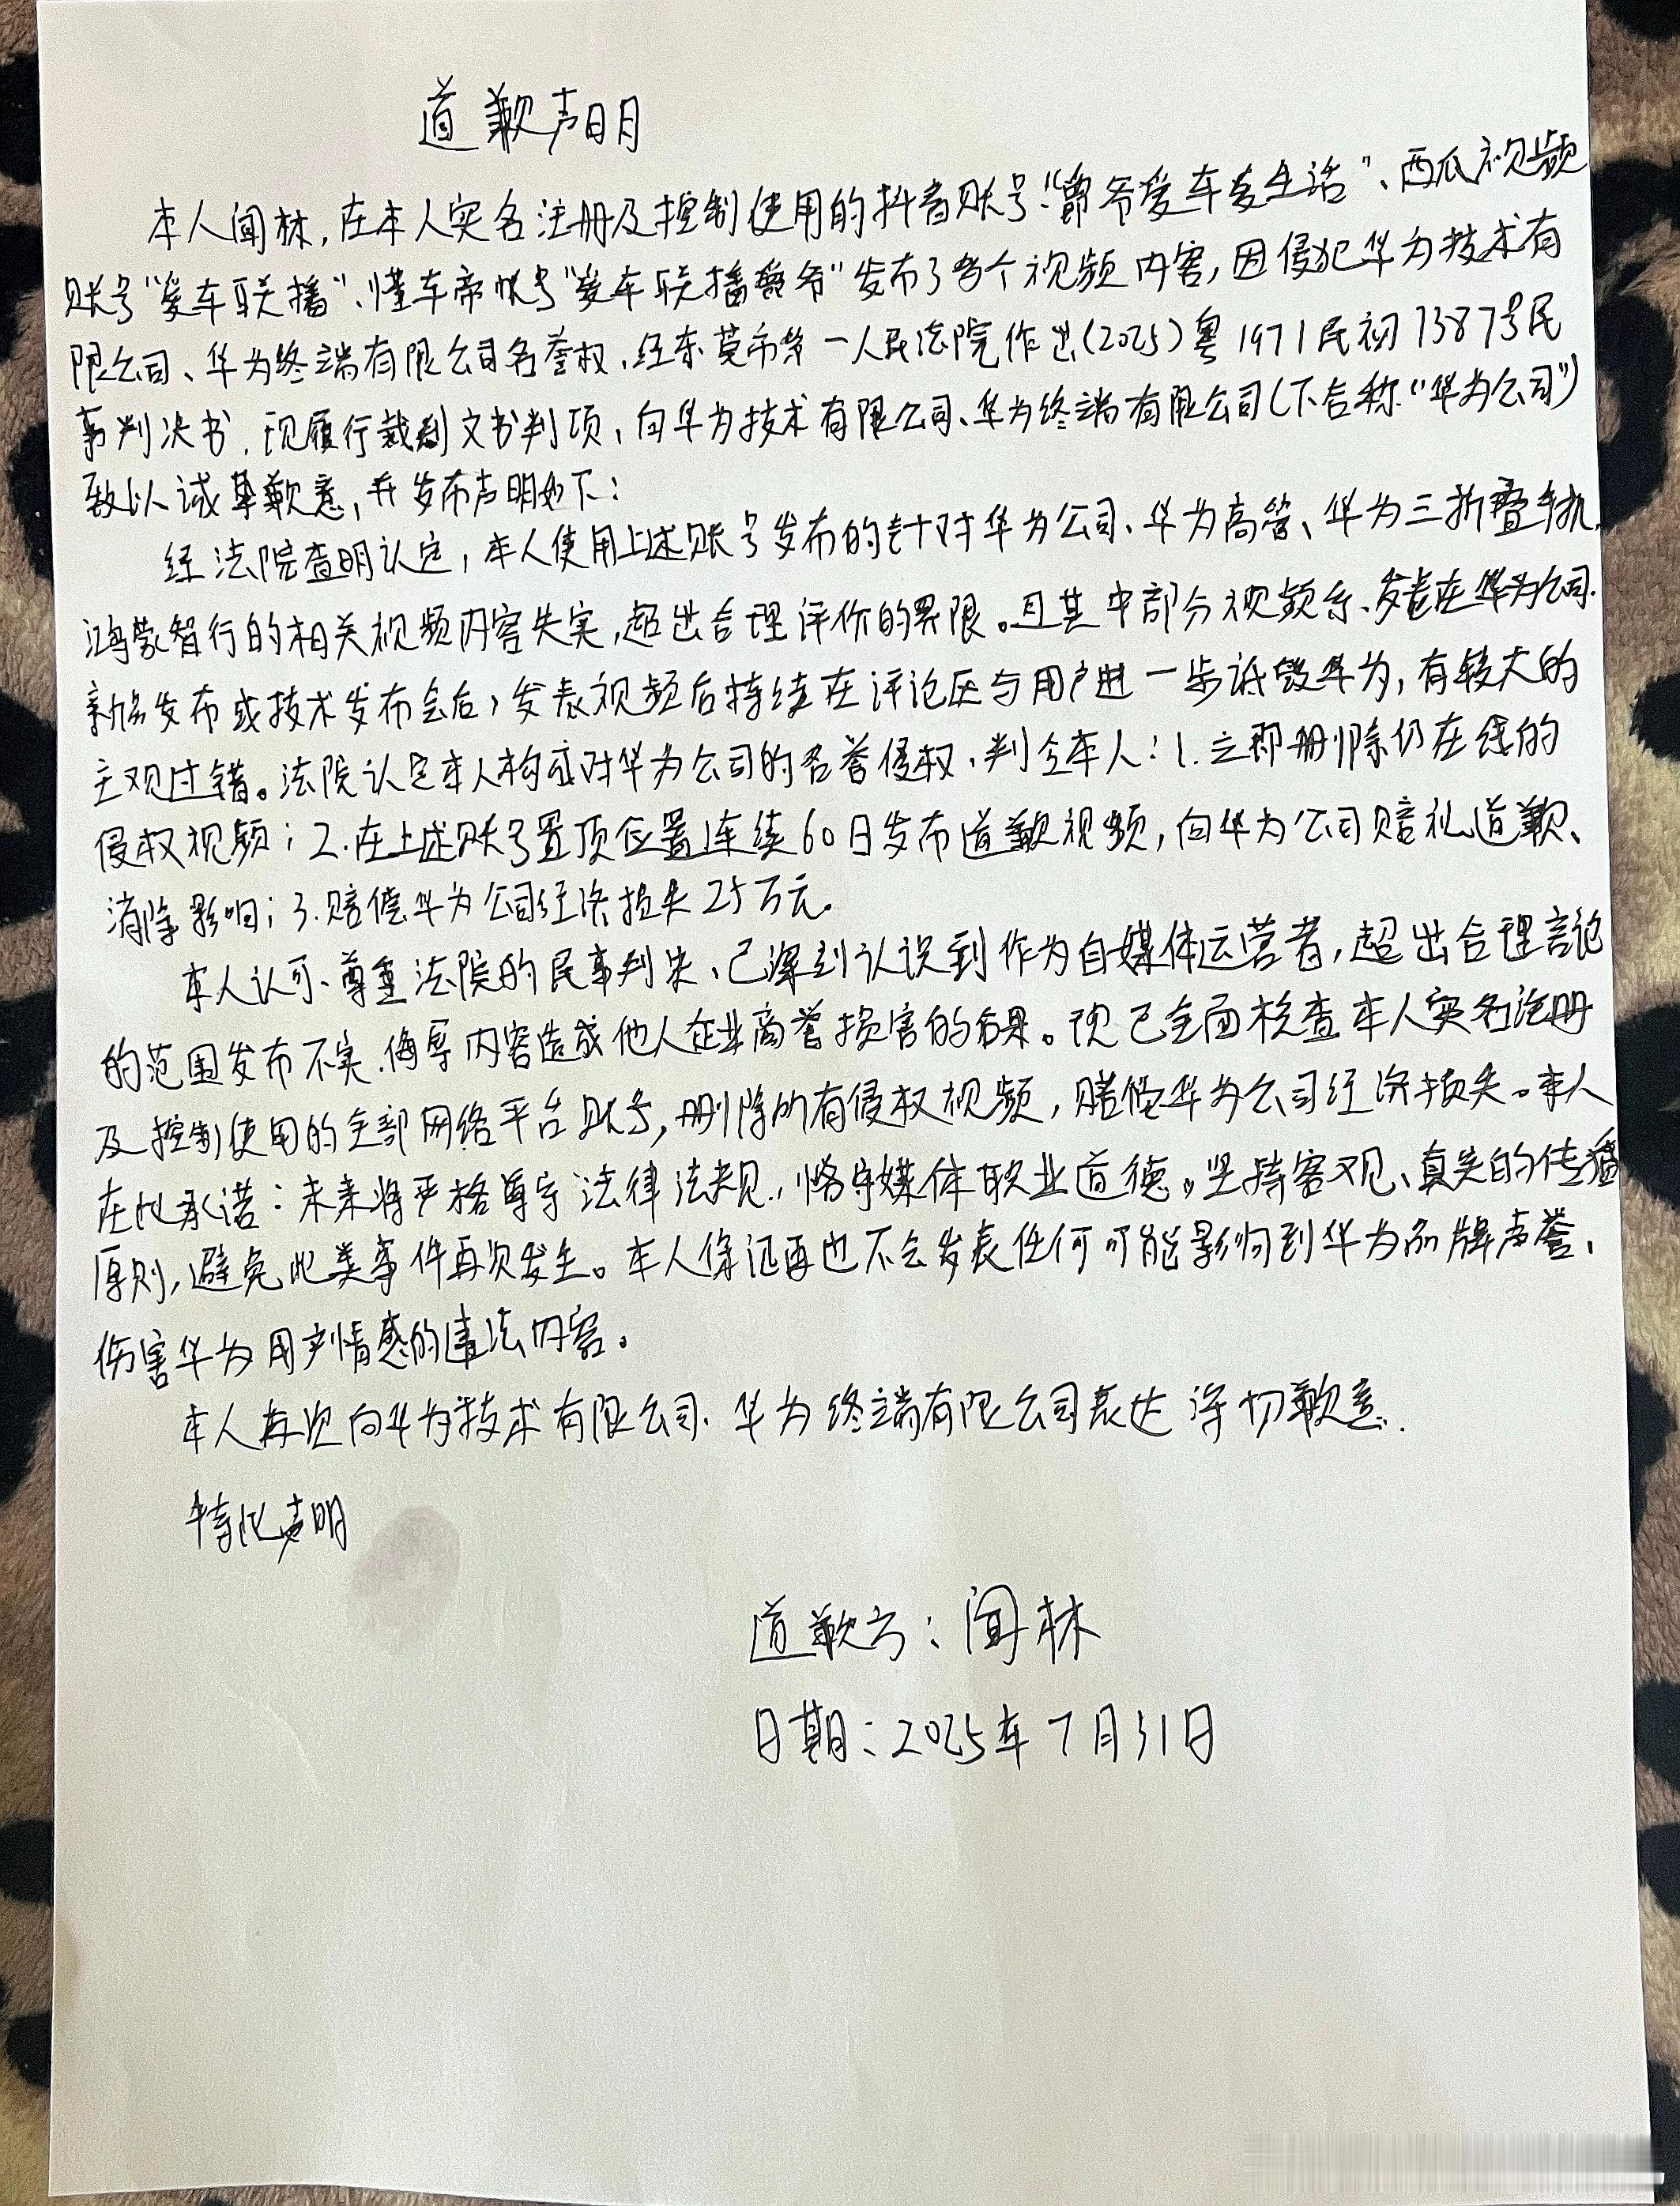 道歉声明
本人闻林,在本人实名注册及控制使用的抖音账号“爵爷爱车爱生活”、西瓜视频
账号“爱车联播”、懂车帝帐号“爱车联播爵爷”发布了多个视频内容,因侵犯华为技术有
限公司、华为终端有限公司名誉权,经东莞市第一人民法院作出(2025)粤1971民初7387号民
事判决书,现履行裁判文书判项,向华为技术有限公司、华为终端有限公司(下合称“华为公司”)
致以诚挚歉意,并发布声明如下:
经法院查明认定,本人使用上述账号发布的针对华为公司、华为高管、华为三折叠手机、
鸿蒙智行的相关视频内容失实,超出合理评价的界限。且其中部分视频系、发表在华为公司
新品发布或技术发布会后,发表视频后持续在评论区与用户进一步诋毁华为,有较大的
主观过错。法院认定本人构成对华为公司的名誉侵权,判令本人:1.立即删除仍在线的
侵权视频;2.在上述账号置顶位置连续60日发布道歉视频,向华为公司赔礼道歉、
消除影响;3.赔偿华为公司经济损失25万元。
本人认可、尊重法院的民事判决、已深刻认识到作为自媒体运营者,超出合理言论
的范围发布不实、侮辱内容造成他人企业商誉损害的后果。现已全面核查本人实名注册
及控制使用的全部网络平台账号,删除所有侵权视频,赔偿华为公司经济损失。本人
在此承诺:未来将严格遵守法律法规,恪守媒体职业道德。坚持客观、真实的传播
原则,避免此类事件再次发生。本人保证再也不会发表任何可能影响到华为品牌声誉、
伤害华为用户情感的违法内容。
本人再次向华为技术有限公司、华为终端有限公司表达深切歉意.
特此声明
道歉方:闻林
日期:2025年7月31日